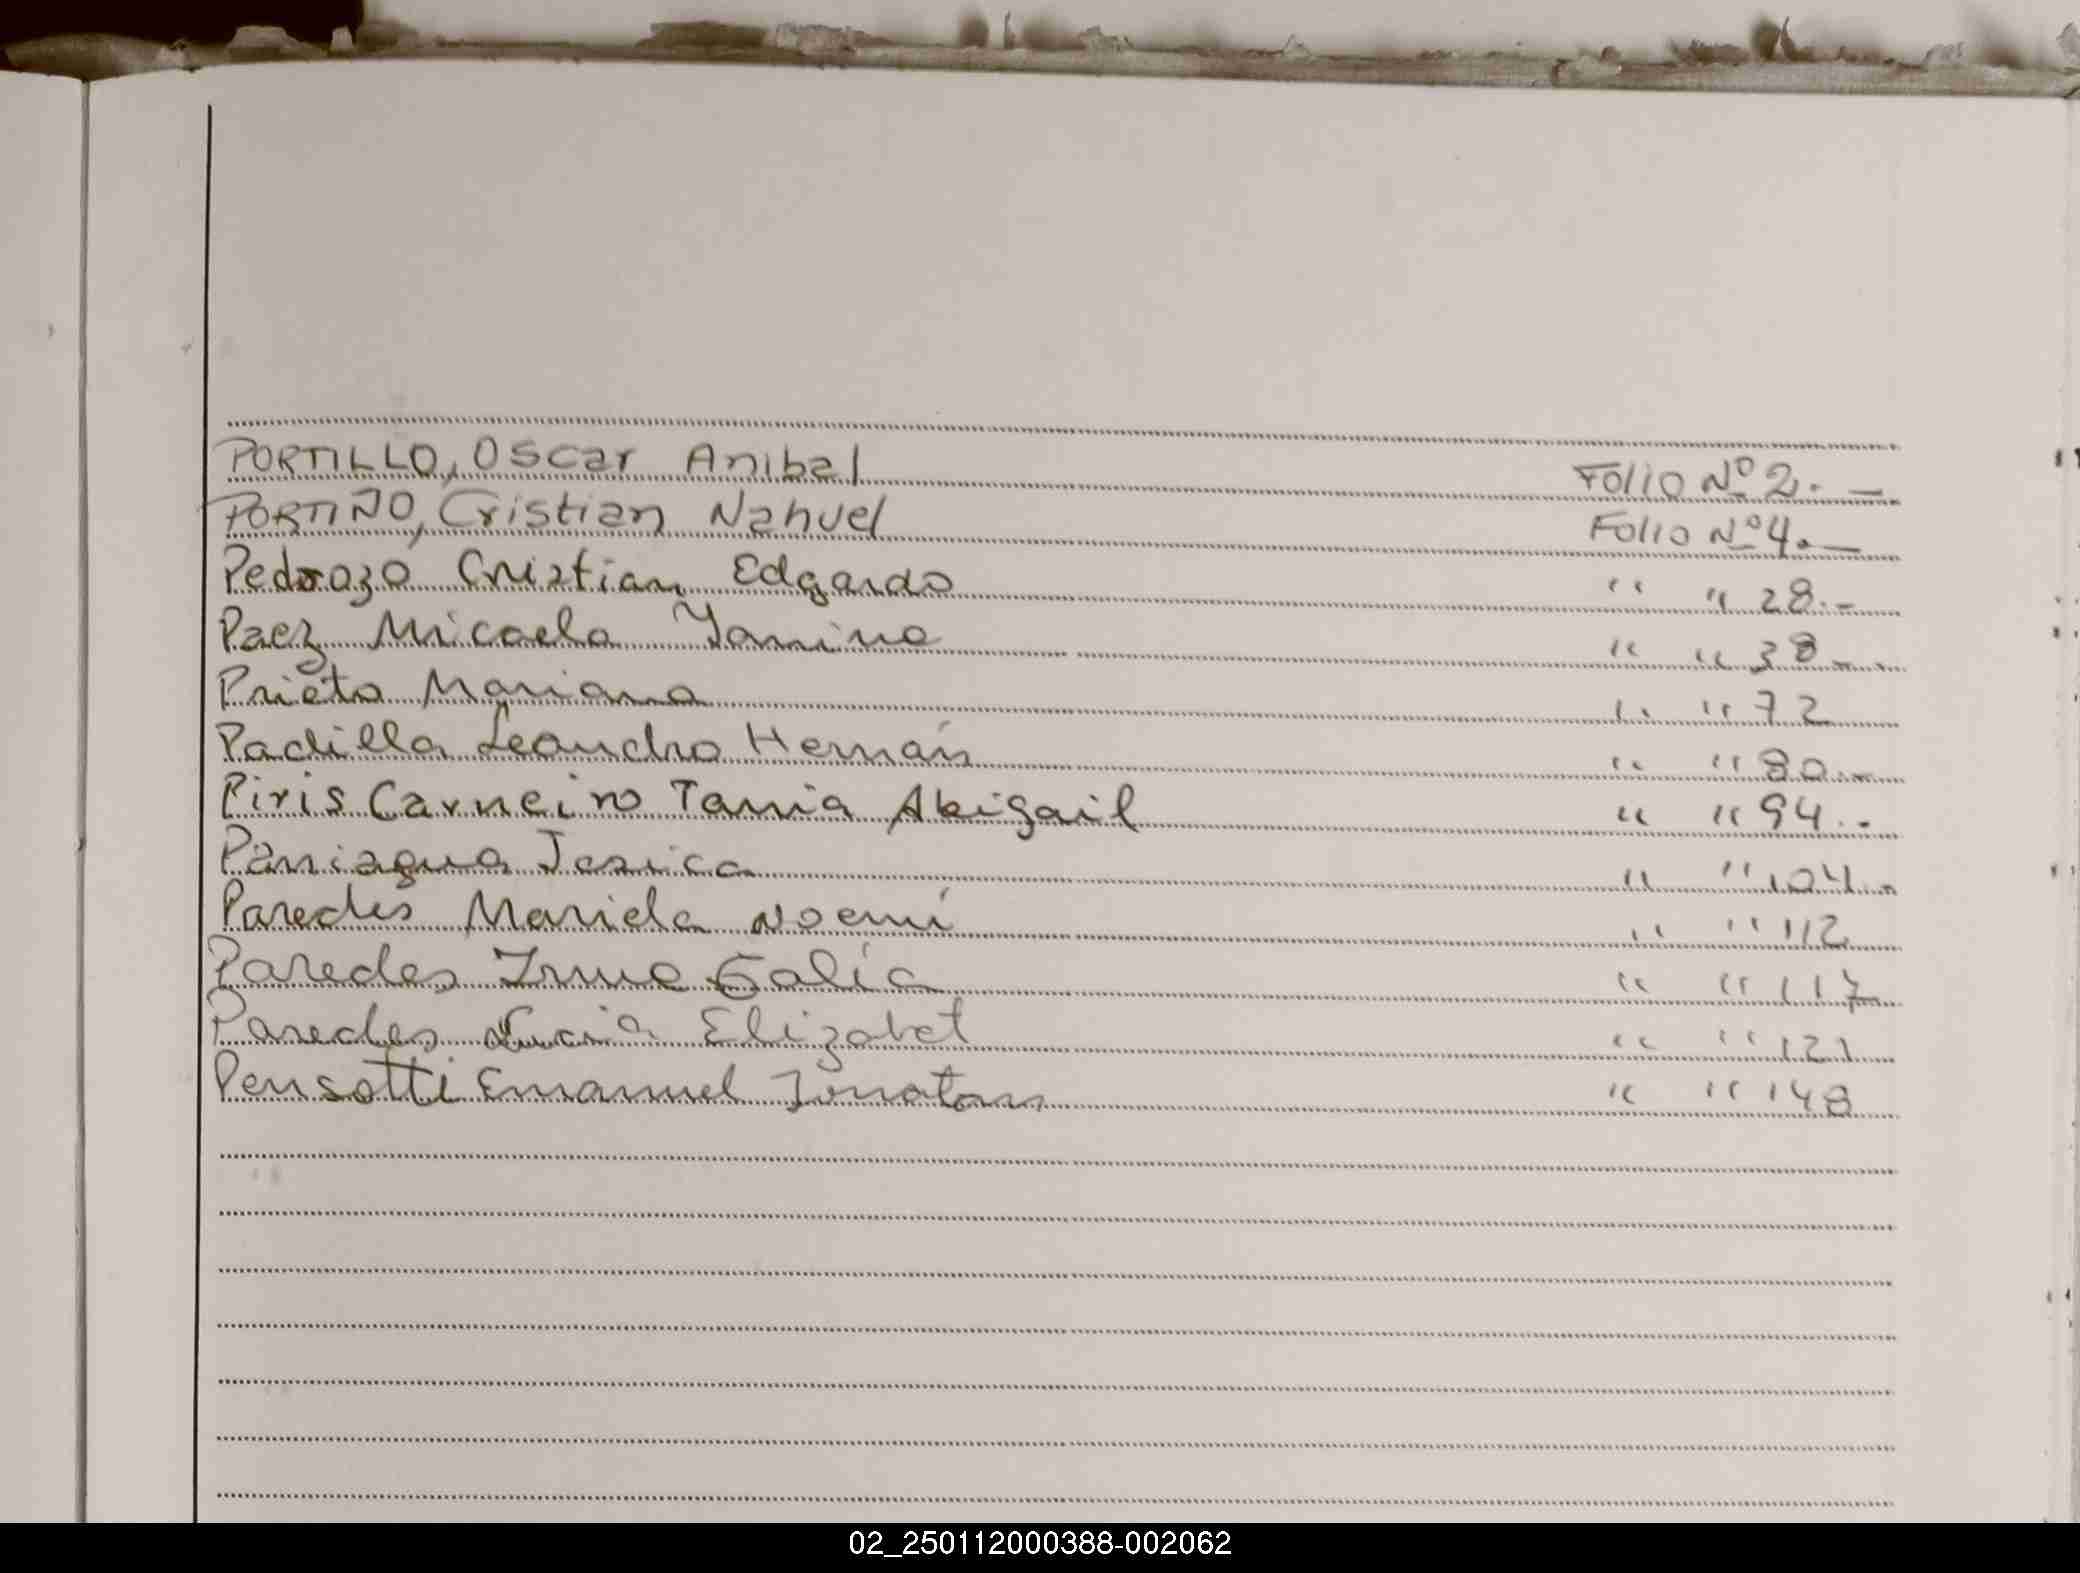 PORTILLO, Oscar Anibal Folio Nº 2. —
PORTIÑO, Cristian Nahuel Folio Nº 4. —
Pedrozo Cristian Edgardo " " 28. -
Paez Micaela Yanina " " 38. -
Prieto Mariana " " 72
Padilla Leandro Hernán " " 80. -
Piris Carneiro Tania Abigail " " 94. -
Paniagua Jesica " " 104. -
Paredes Mariela Noemí " " 112
Paredes Irma " " 117
Paredes Lucia Elizabet " " 121
Pensotti Emanuel Jonatan " " 148
02_250112000388-002062